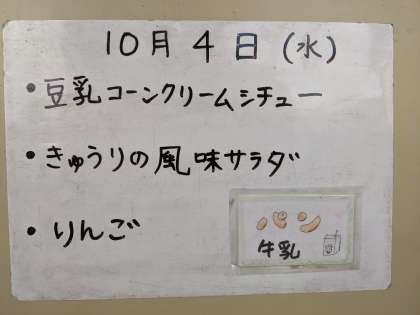 10月4日(水)
• 豆乳コーンクリームシチュー
• きゅうりの風味サラダ
• りんご
パン
牛乳